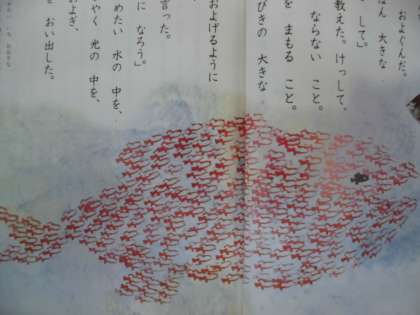 およぐんだ。
ばん 大きな
して。」
教えた。けっして、
ならない こと。
を まもる こと。
ぴきの 大きな
およげるように
言った。
に なろう。」
めたい 水の 中を、
やく 光の 中を、
およぎ、
を おい出した。